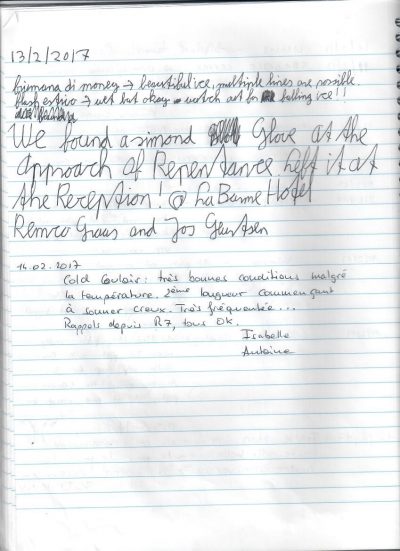 13/2/2017
biemana di money → beautifull ice, multiple lines are possible.
flash estivo → wet but okay watch out for falling ice!!
We found a simond Glove at the
approach of Repentance left it at
the Reception! @ La Barme Hotel
Remco Graas and Jos Geurtsen
14.02.2017
Cold Couloir : très bonnes conditions malgré
la température. 2ème longueur commençant
à sonner creux. Très fréquentée...
Rappels depuis R7, tous OK.
Isabelle
Antoine